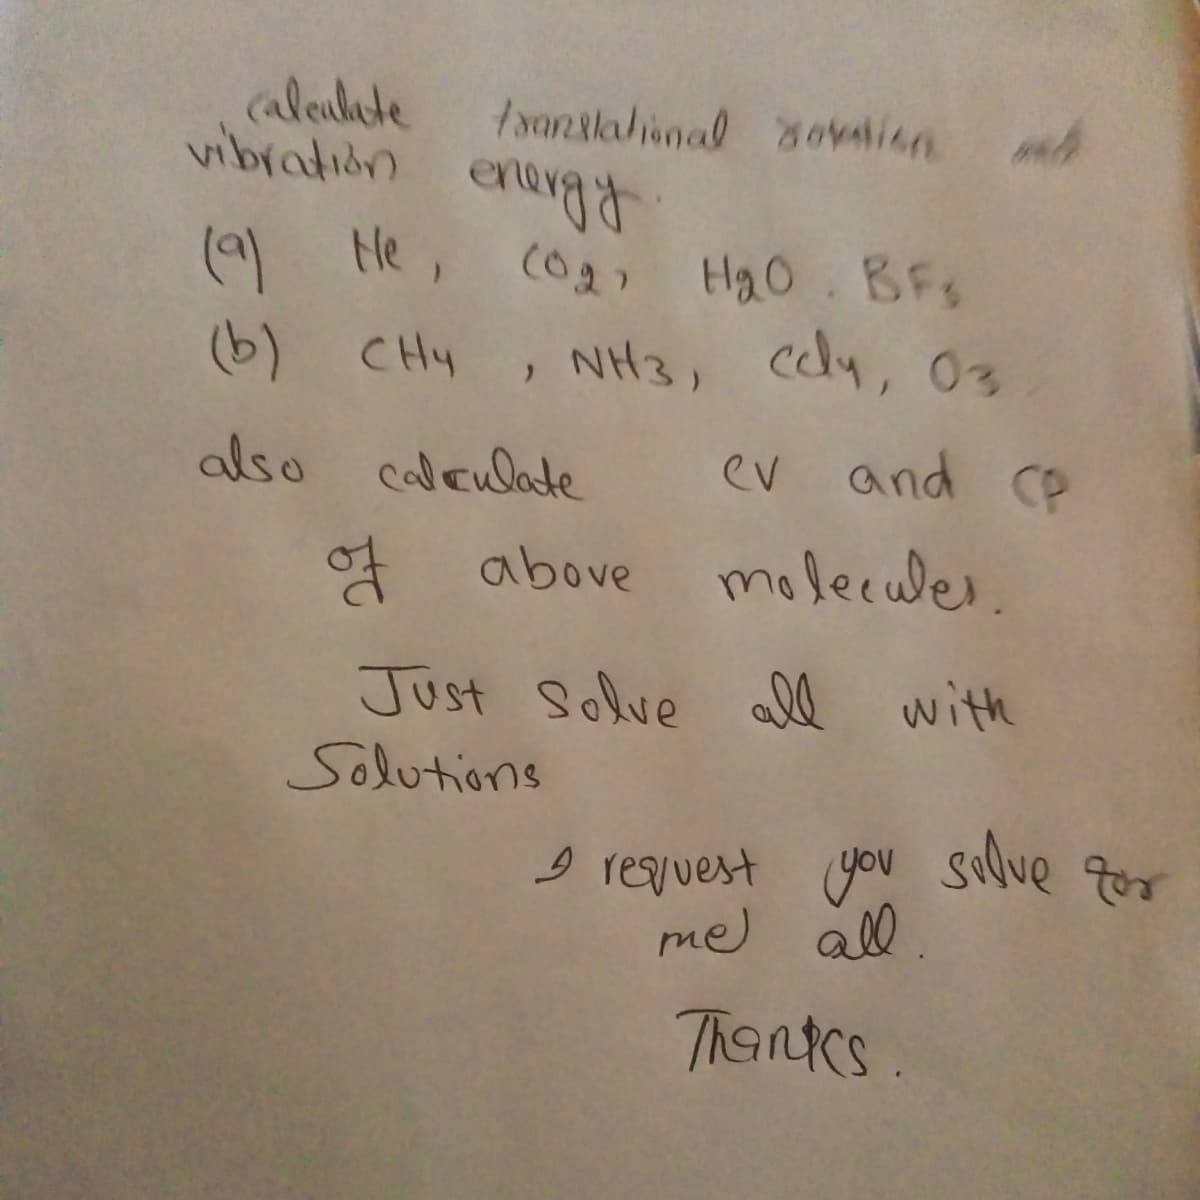 calculate translational rotation and
vibration energy.
(a) He, CO2, H2O. BF3
(b) CH4, NH3, CCl4, O3
also calculate CV and CP
of above molecules.
Just Solve all with
Solutions
I request you solve for
me all.
Thanks.